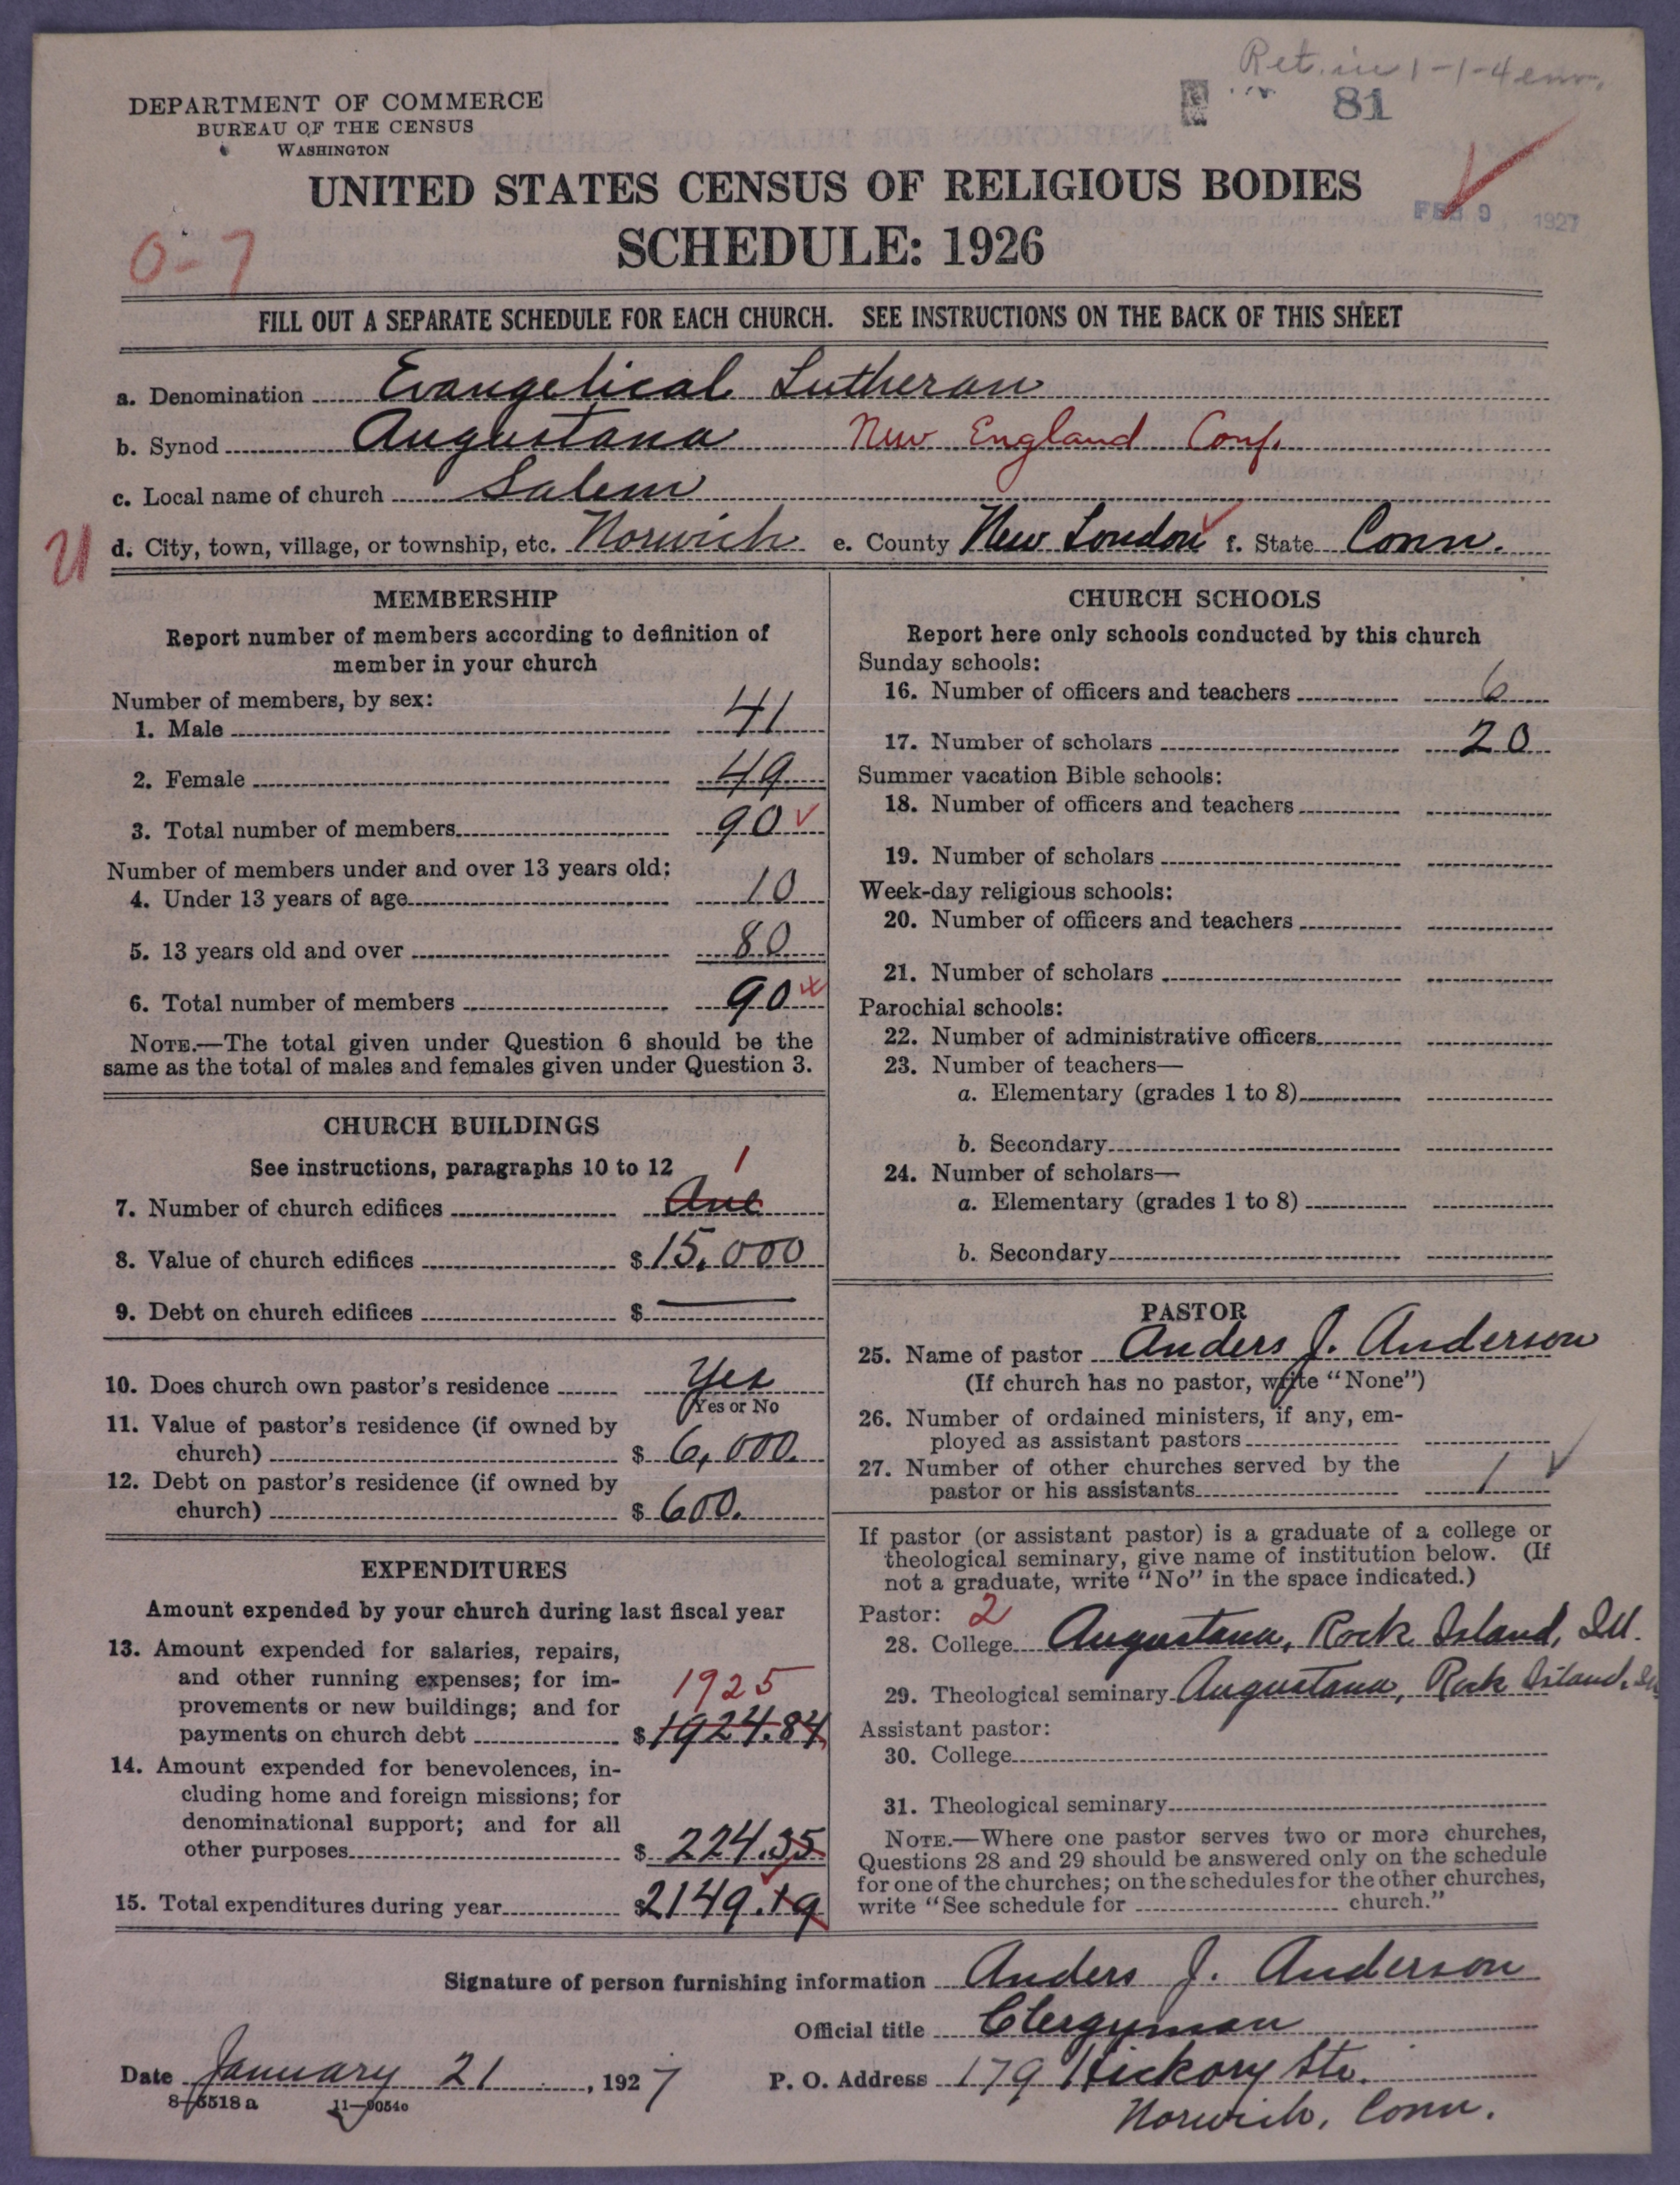 Ret. in 1-1-4 env.
81
DEPARTMENT OF COMMERCE
BUREAU OF THE CENSUS
WASHINGTON
UNITED STATES CENSUS OF RELIGIOUS BODIES
FEB 9, 1927
SCHEDULE: 1926
0-7
FILL OUT A SEPARATE SCHEDULE FOR EACH CHURCH. SEE INSTRUCTIONS ON THE BACK OF THIS SHEET
a. Denomination Evangelical Lutheran
b. Synod Augustana New England Conf.
c. Local name of church Salem
d. City, town, village, or township, etc. Norwich e. County New London f. State Conn.
MEMBERSHIP
Report number of members according to definition of
member in your church
Number of members, by sex:
1. Male 41
2. Female 49
3. Total number of members 90
Number of members under and over 13 years old:
4. Under 13 years of age 10
5. 13 years old and over 80
6. Total number of members 90
NOTE.—The total given under Question 6 should be the
same as the total of males and females given under Question 3.
CHURCH BUILDINGS
See instructions, paragraphs 10 to 12
1
7. Number of church edifices One
8. Value of church edifices $15,000
9. Debt on church edifices $ —
10. Does church own pastor's residence Yes
(Yes or No
11. Value of pastor's residence (if owned by
church) $ 6,000.
12. Debt on pastor's residence (if owned by
church) $ 600.
EXPENDITURES
Amount expended by your church during last fiscal year
13. Amount expended for salaries, repairs,
and other running expenses; for im-
provements or new buildings; and for
1925
payments on church debt $1924.84
14. Amount expended for benevolences, in-
cluding home and foreign missions; for
denominational support; and for all
other purposes $ 224.35
15. Total expenditures during year $2149.19
CHURCH SCHOOLS
Report here only schools conducted by this church
Sunday schools:
16. Number of officers and teachers 6
17. Number of scholars 20
Summer vacation Bible schools:
18. Number of officers and teachers
19. Number of scholars
Week-day religious schools:
20. Number of officers and teachers
21. Number of scholars
Parochial schools:
22. Number of administrative officers
23. Number of teachers—
a. Elementary (grades 1 to 8)
b. Secondary
24. Number of scholars—
a. Elementary (grades 1 to 8)
b. Secondary
PASTOR
25. Name of pastor Anders J. Anderson
(If church has no pastor, write "None")
26. Number of ordained ministers, if any, em-
ployed as assistant pastors
27. Number of other churches served by the
pastor or his assistants 1
If pastor (or assistant pastor) is a graduate of a college or
theological seminary, give name of institution below. (If
not a graduate, write "No" in the space indicated.)
Pastor: 2
28. College Augustana, Rock Island, Ill.
29. Theological seminary Augustana, Rock Island, Ill
Assistant pastor:
30. College
31. Theological seminary
NOTE.—Where one pastor serves two or more churches,
Questions 28 and 29 should be answered only on the schedule
for one of the churches; on the schedules for the other churches,
write "See schedule for church."
Signature of person furnishing information Anders J. Anderson
Official title Clergyman
Date January 21, 1927 P. O. Address 179 Hickory Str.
8-5518a 11-9054c
Norwich, Conn.